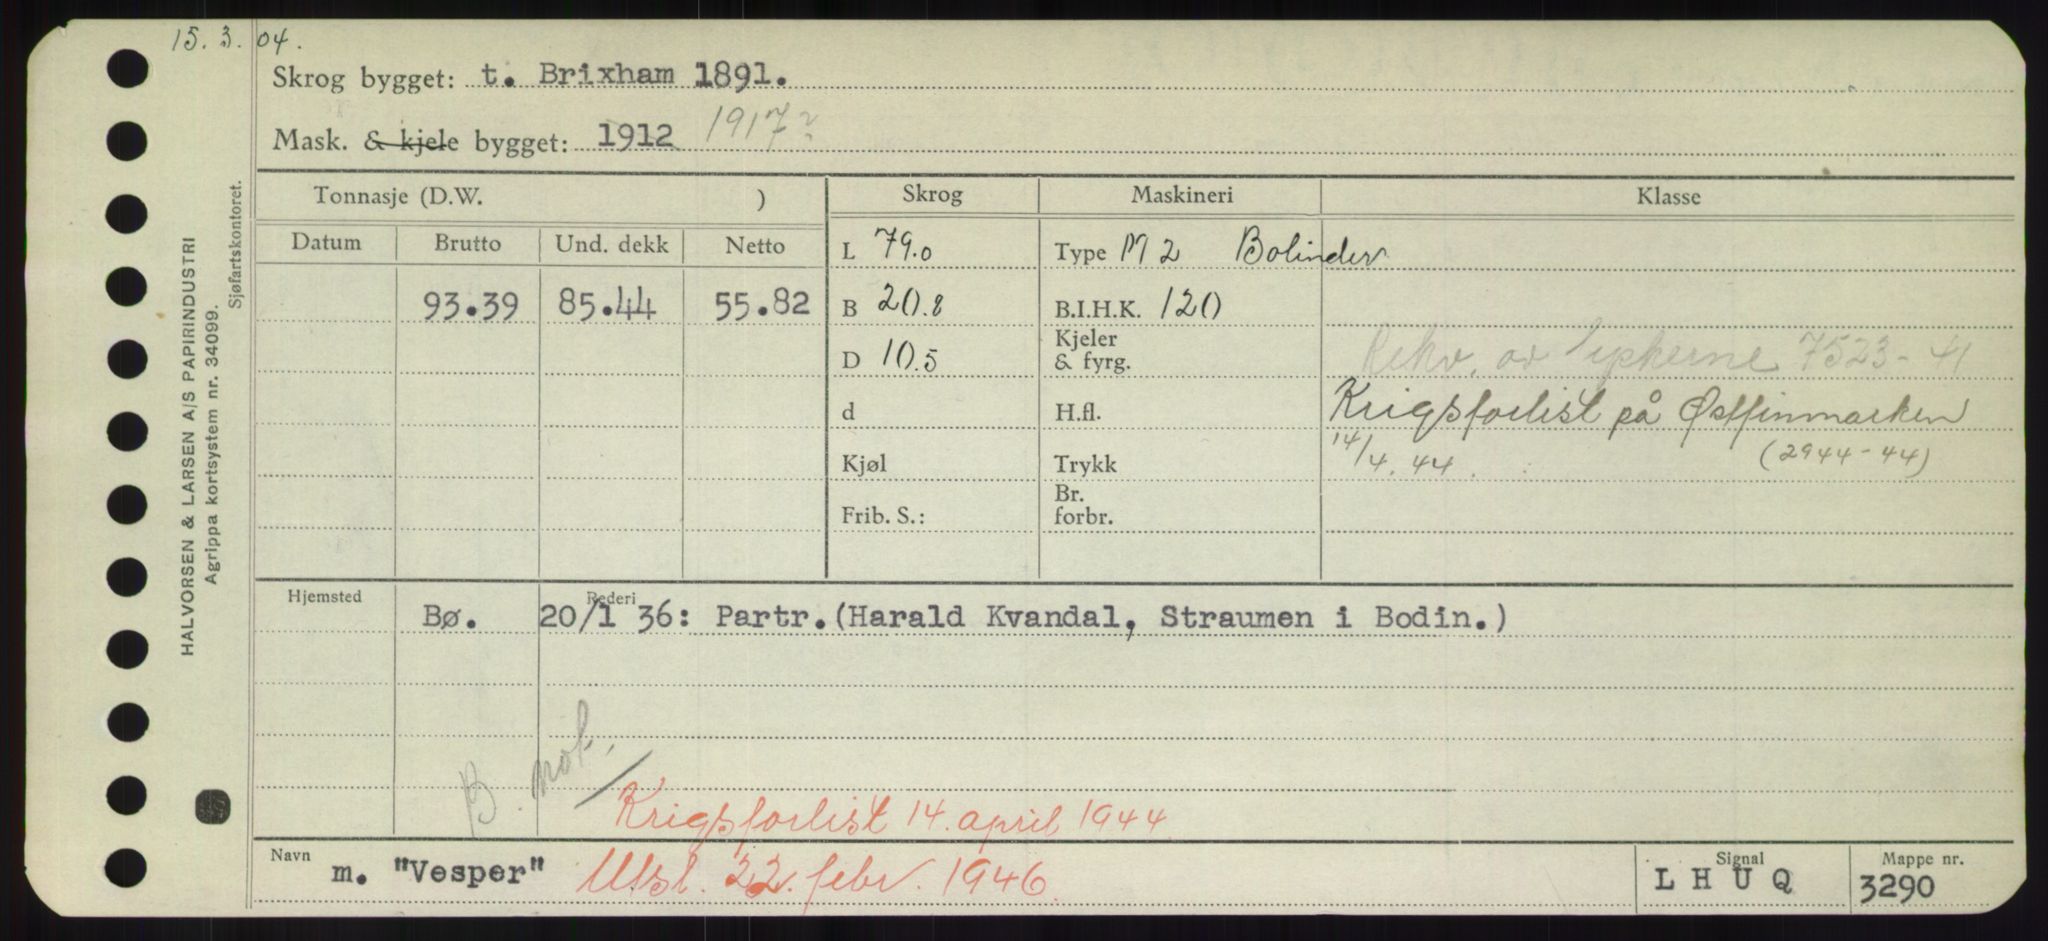 15. 3. 04.
Skrog bygget: t. Brixham 1891.
Mask. & kjele bygget: 1912 1917?
Tonnasje (D.W. ) Skrog Maskineri Klasse
Datum Brutto Und. dekk Netto L 79.0 Type M 2 Bolinder
93.39 85.44 55.82 B 20.8 B.I.H.K. 120
D 10.5 Kjeler & fyrg. Rekv. av tyskerne 7523-41
d H.fl. Krigsforlist på Østfinmarken
14/4. 44. (2944-44)
Kjøl Trykk
Frib. S.: Br. forbr.
Hjemsted Rederi
Bø. 20/1 36: Partr. (Harald Kvandal, Straumen i Bodin.)
B.
Krigsforlist 14. april 1944
Navn m. "Vesper" Utsl. 22. febr. 1946. Signal L H U Q Mappe nr. 3290
HALVORSEN & LARSEN A/S PAPIRINDUSTRI
Agrippa kortsystem nr. 34099.
Sjøfartskontoret.